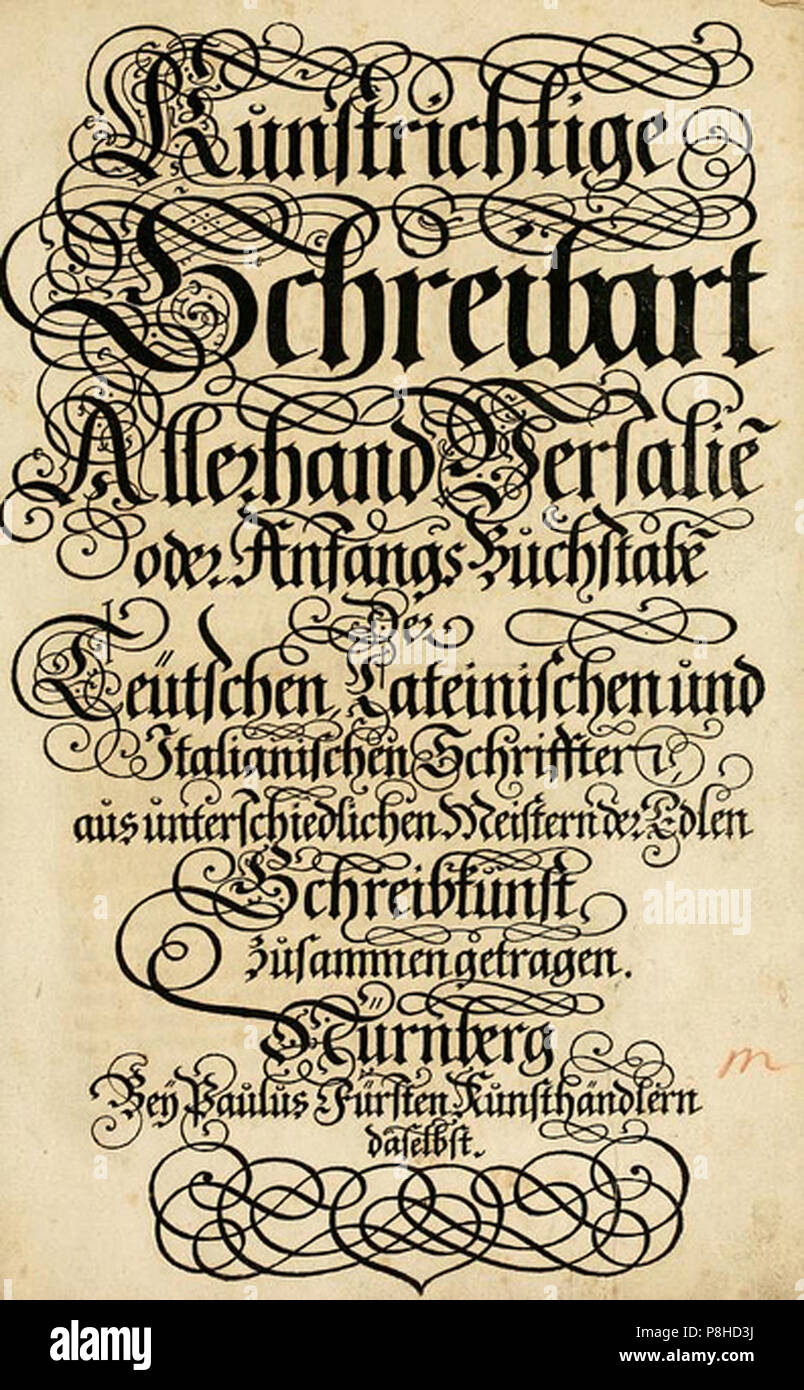 Kunſtrichtige
Schreibart
Allerhand Verſaliē
oder Anfangs Buchſtabē
Der
Teütſchen Lateiniſchen und
Italianiſchen Schrifften
aus unterſchiedlichen Meiſtern der Edlen
Schreibkunſt
zuſammen getragen.
Nürnberg
Bey Paulus Fürſten Kunſthändlern
daſelbſt.
m
alamy
alamy
Image ID: P8HD3J
www.alamy.com